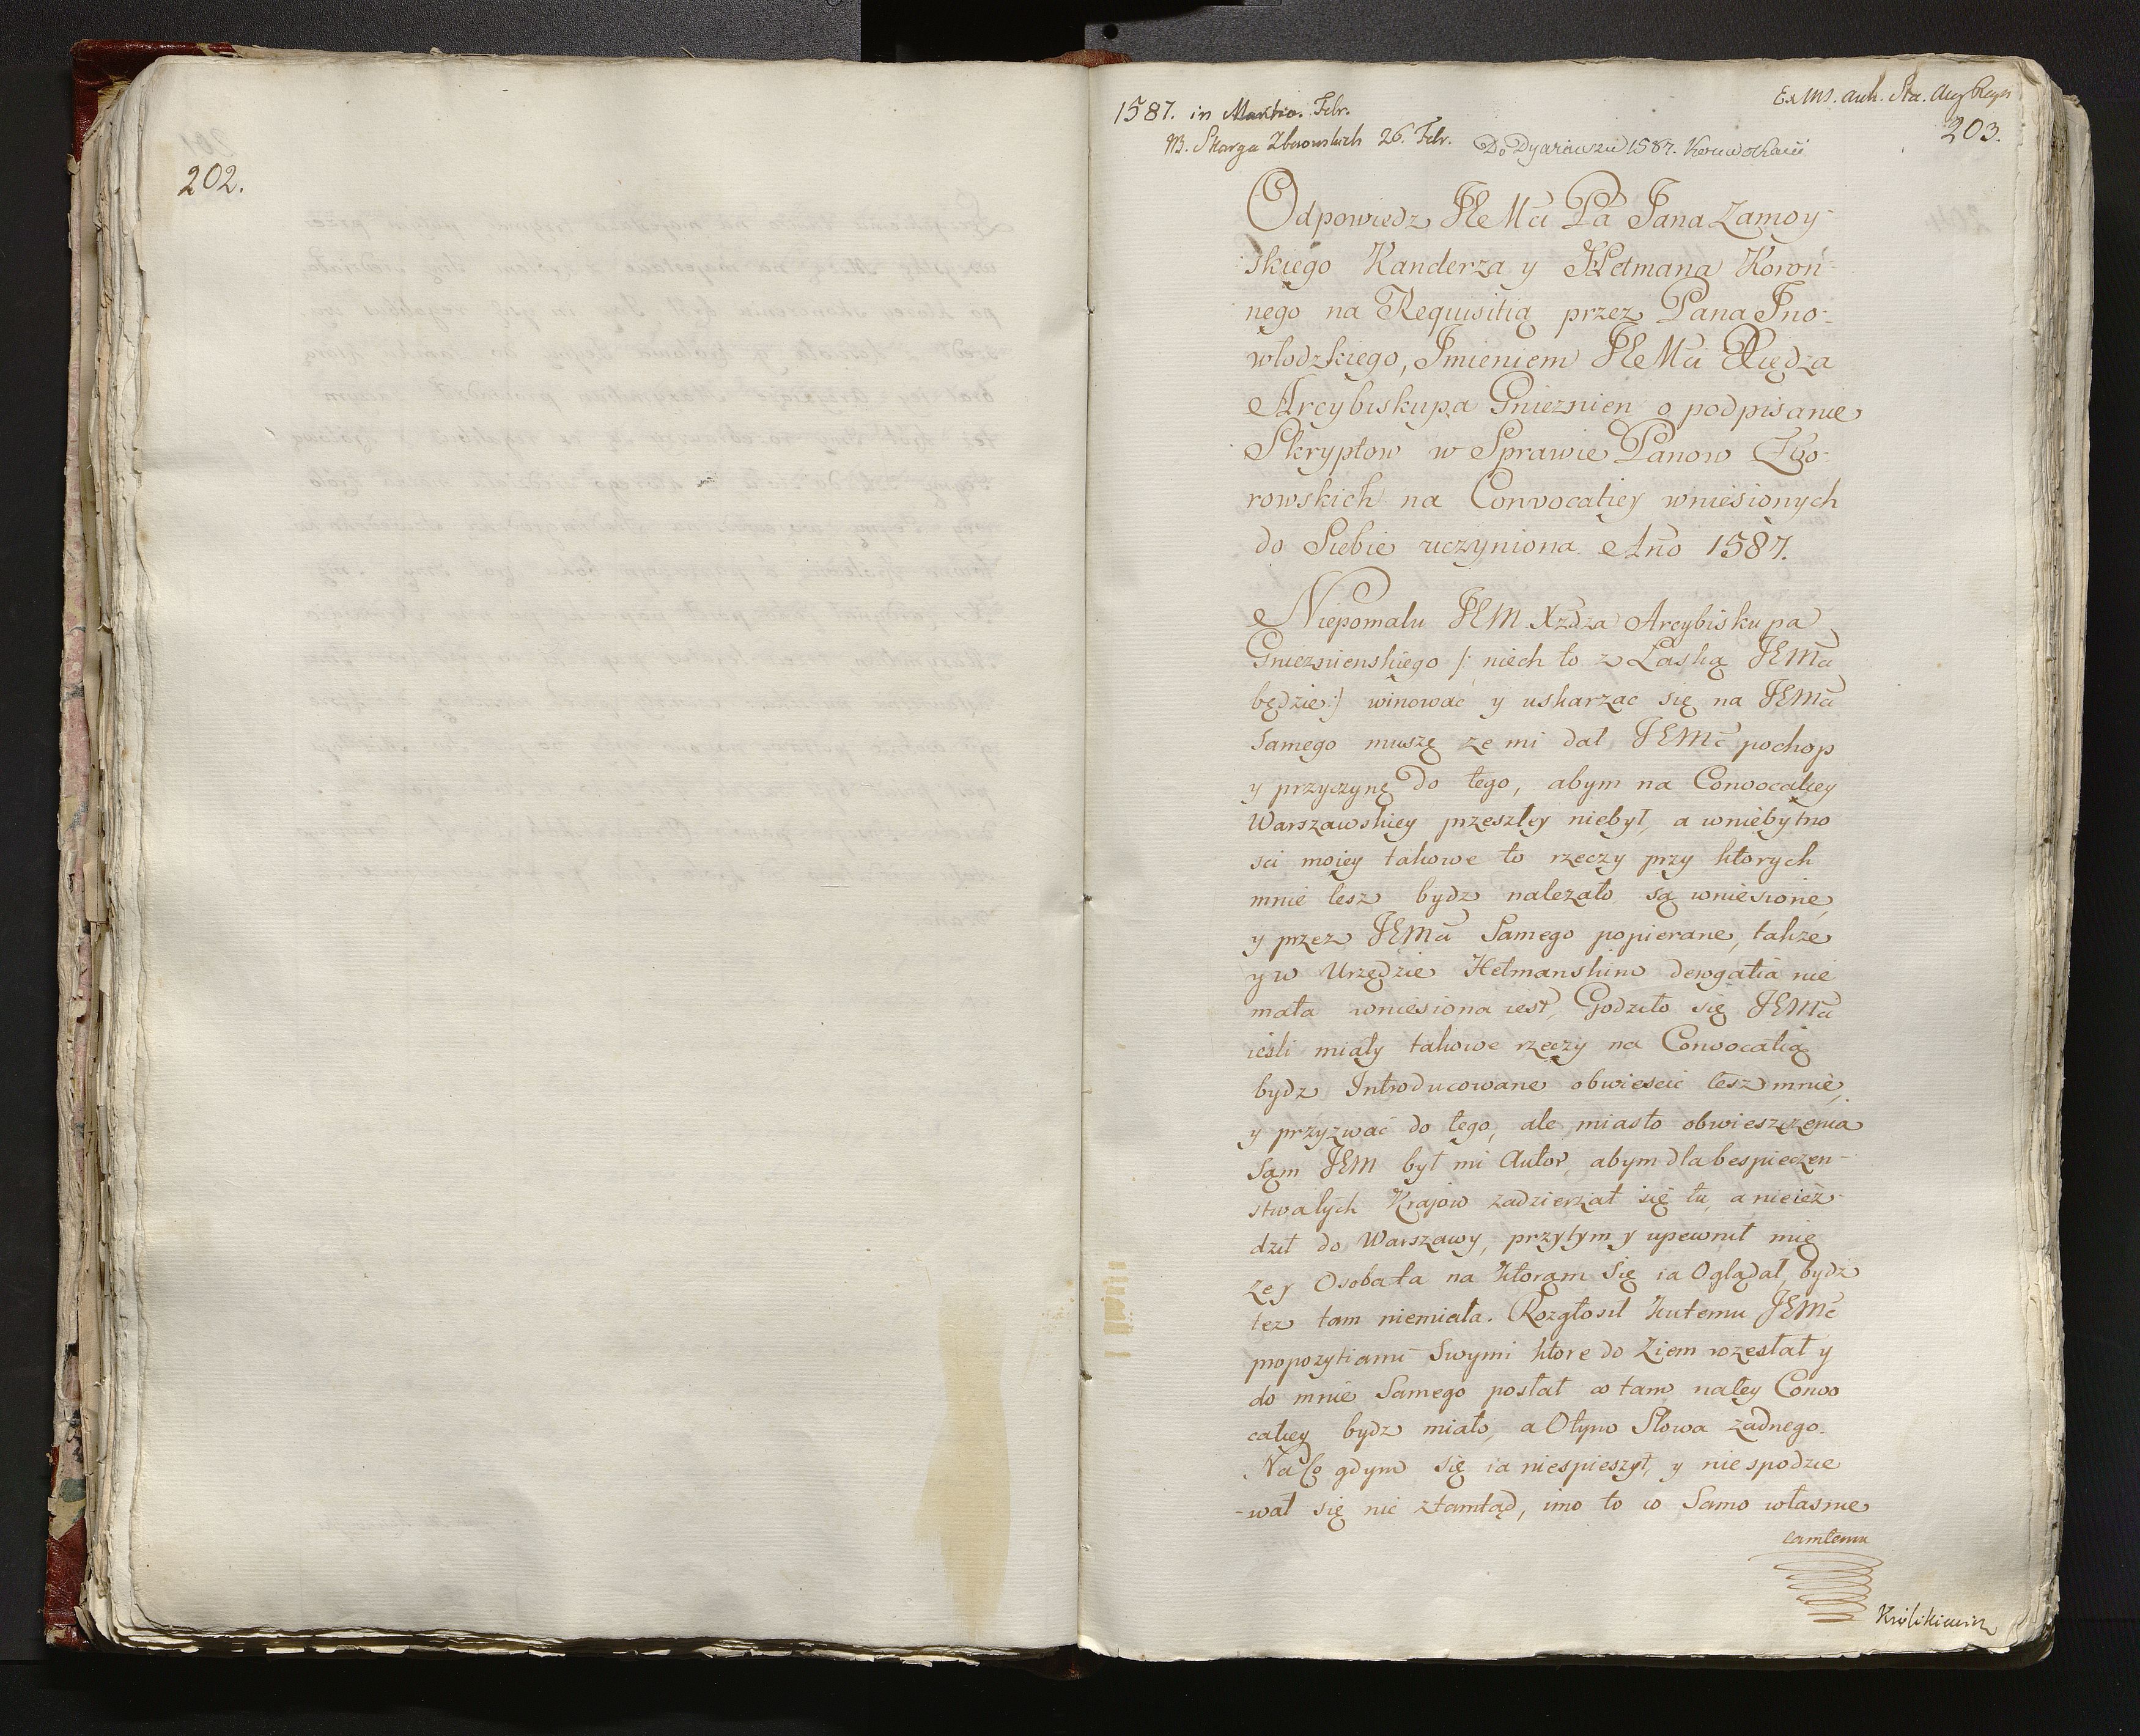 202.
1587. in Martio. Febr.
NB. Skarga Zborowskich 26. Febr.
Do Dyariuszu 1587. Konwokacii
Ex MS. auh. Sta. Aug Regis
203.
Odpowiedz JEe Mci Pa Jana Zamoy-
skiego Kanclerza y Hetmana Koron-
nego na Requisitią przez Pana Jno-
wlodzkiego, Jmieniem JEe Mci Xiędza
Arcybiskupa Gnieznien o podpisanie
Skryptow w Sprawie Panow Zbo-
rowskich na Convocatiey wniesionych
do Siebie uczyniona Año 1587.
Niepomalu JEM Xzdza Arcybiskupa
Gnieznienskiego /: niech to z Laską JEMci
będzie :/ winować y uskarzac się na JEMci
Samego muszę ze mi dał JEMć pochop
y przyczynę do tego, abym na Convocatiey
Warszawskiey przeszłey niebył, a wniebytno
sci moiey takowe to rzeczy przy ktorych
mnie tesz bydz nalezało są wniesione,
y przez JEMci Samego popierane, takze
y w Urzędzie Hetmanskim derogatia nie
mała wniesiona iest, Godziło się JEMci
iesli miały takowe rzeczy na Convocatią
bydz Introducowane obwiescic tesz mnie,
y przyzwać do tego, ale miasto obwieszczenia
Sam JEM był mi Autor, abym dla bespieczen-
stwa tych Krajow zadzierzał się tu, a nieież-
dził do Warszawy, przytym y upewnił mię
ze y Osoba ta na ktoram się ia Oglądał, bydz
tez tam niemiała. Rozgłosił kutemu JEMć
propozytiami Swymi ktore do Ziem rozesłał y
do mnie Samego posłał co tam natey Convo
catiey bydz miało, a Otym Słowa zadnego.
Na Co gdym się ia niespieszył, y nie spodzie
-wał się nic ztamtąd, imo to co Samo własnie
tamtemu
Królikiewicz